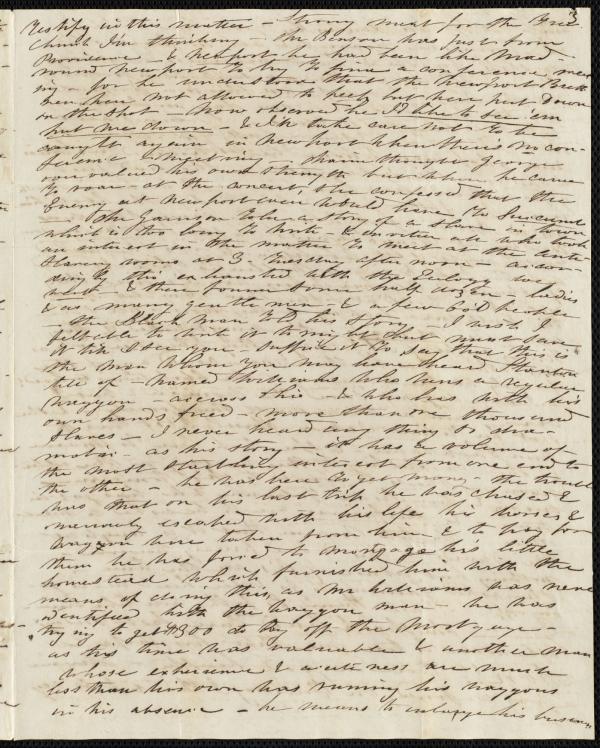 3
testify in this matter - Strong meat for the Free
Church I'm thinking - Mr Benson was just from
Providence - & Newport he had been like mad
round Newport to try to find a conference meet
ing - for he understood that the Newport
men were not allowed to keep but were put down
on the spot - Now observed he I'd like to see 'em
put me down - & I'll take care not to be
caught again in Newport when there's no con-
ference meeting - thought George
over valued his own strength but when he came
to roar - at the concert, I she confessed that the
Enemy at Newport even would have to succumb
Mr Garrison told a story of a slave in town
which is too long to write - & invited all who took
an interest in the matter to meet at the Anti
Slavery rooms at 3 - Tuesday after noon - accor-
dingly this exhausted with the Eulogy we
went & there found some half dozen - ladies
& as many gentlemen - & a few col'd people
- the Black man told his story - I wish I
felt able to write it to might but must save
it till I see you - suffice it to say that this is
the man whom you may have heard Stanton
tell of - named Williams who runs a regular
waggon - across this - & who has with his
own hands freed - more than one thousand
Slaves - I never heard any thing so dra-
matic - as his story - it has a volume of
the most startling interest from one end to
the other - he was here to get money - the trouble
was that on his last trip he was chased &
narrowly escaped with his life his horses &
waggon were taken from him & to pay for
them he was forced to mortgage his little
homestead which furnished him with the
means of doing this, as Mr Williams was never
identified with the waggon man - he was
trying to get $300 to pay off the mortgage -
as his time was valuable & another man
whose experience & acuteness are much
less than his own was running his waggons
in his absence - he means to enlarge his business